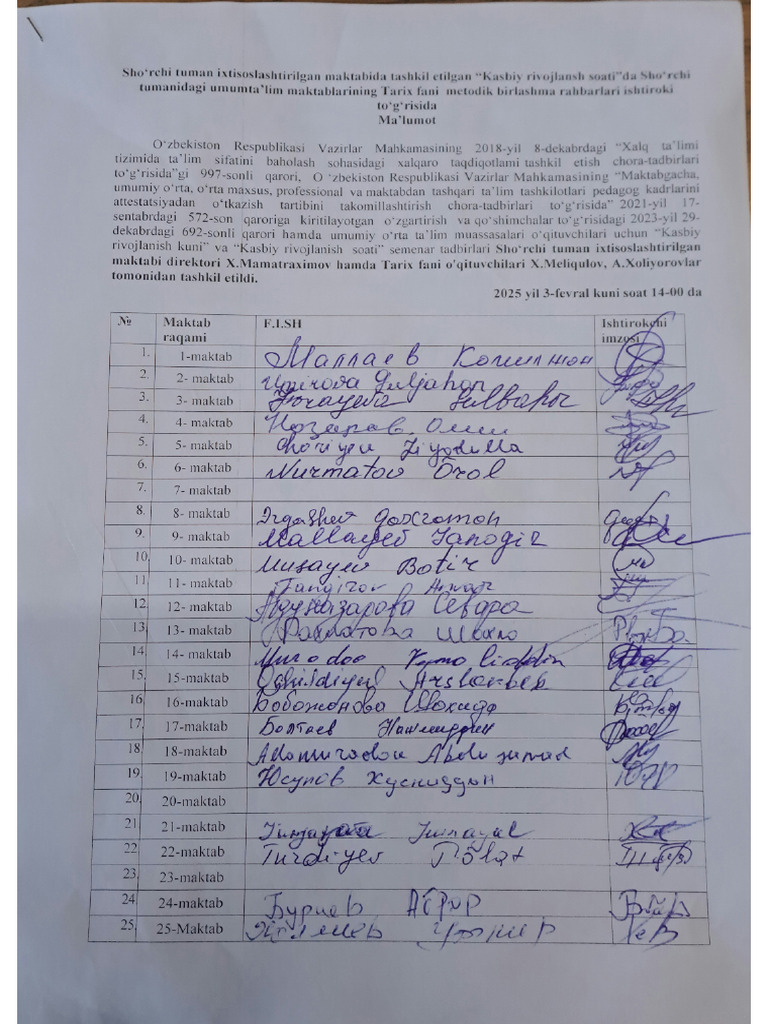 Sho‘rchi tuman ixtisoslashtirilgan maktabida tashkil etilgan “Kasbiy rivojlansh soati”da Sho‘rchi
tumanidagi umumta’lim maktablarining Tarix fani metodik birlashma rahbarlari ishtiroki
to‘g‘risida
Ma’lumot
O‘zbekiston Respublikasi Vazirlar Mahkamasining 2018-yil 8-dekabrdagi “Xalq ta’limi
tizimida ta’lim sifatini baholash sohasidagi xalqaro taqdiqotlami tashkil etish chora-tadbirlari
to‘g‘risida”gi 997-sonli qarori, O ‘zbekiston Respublikasi Vazirlar Mahkamasining “Maktabgacha,
umumiy o‘rta, o‘rta maxsus, professional va maktabdan tashqari ta’lim tashkilotlari pedagog kadrlarini
attestatsiyadan o‘tkazish tartibini takomillashtirish chora-tadbirlari to‘g‘risida” 2021-yil 17-
sentabrdagi 572-son qaroriga kiritilayotgan o‘zgartirish va qo‘shimchalar to‘g‘risidagi 2023-yil 29-
dekabrdagi 692-sonli qarori hamda umumiy o‘rta ta’lim muassasalari o‘qituvchilari uchun “Kasbiy
rivojlanish kuni” va “Kasbiy rivojlanish soati” semenar tadbirlari Sho‘rchi tuman ixtisoslashtirilgan
maktabi direktori X.Mamatraximov hamda Tarix fani o‘qituvchilari X.Meliqulov, A.Xoliyorovlar
tomonidan tashkil etildi.
2025 yil 3-fevral kuni soat 14-00 da
№ Maktab raqami F.I.SH Ishtirokchi imzosi
1. 1-maktab Маллаев Комилжон
2. 2- maktab Umirova Guljahon
3. 3- maktab Jorayeva Gulbahor
4. 4- maktab Назаров Олим
5. 5- maktab Choriyev Ziyodulla
6. 6- maktab Nurmatov Orol
7. 7- maktab
8. 8- maktab Ergashev Qaxramon
9. 9- maktab Mallayev Janogir
10. 10- maktab Musayev Botir
11. 11- maktab Tangirov
12. 12- maktab Абдуназарова Севара
13. 13- maktab Рахматова Шахло
14. 14- maktab Murodov Kamoliddin
15. 15-maktab Arslonbek
16. 16-maktab Бобожонова Шохида
17. 17-maktab Болтаев Нажмиддин
18. 18-maktab Adamuradov Abdusamad
19. 19-maktab Юсупов Хусниддин
20. 20-maktab
21. 21-maktab
22. 22-maktab Turdiyev Pólat
23. 23-maktab
24. 24-maktab Буриев Аброр
25. 25-Maktab